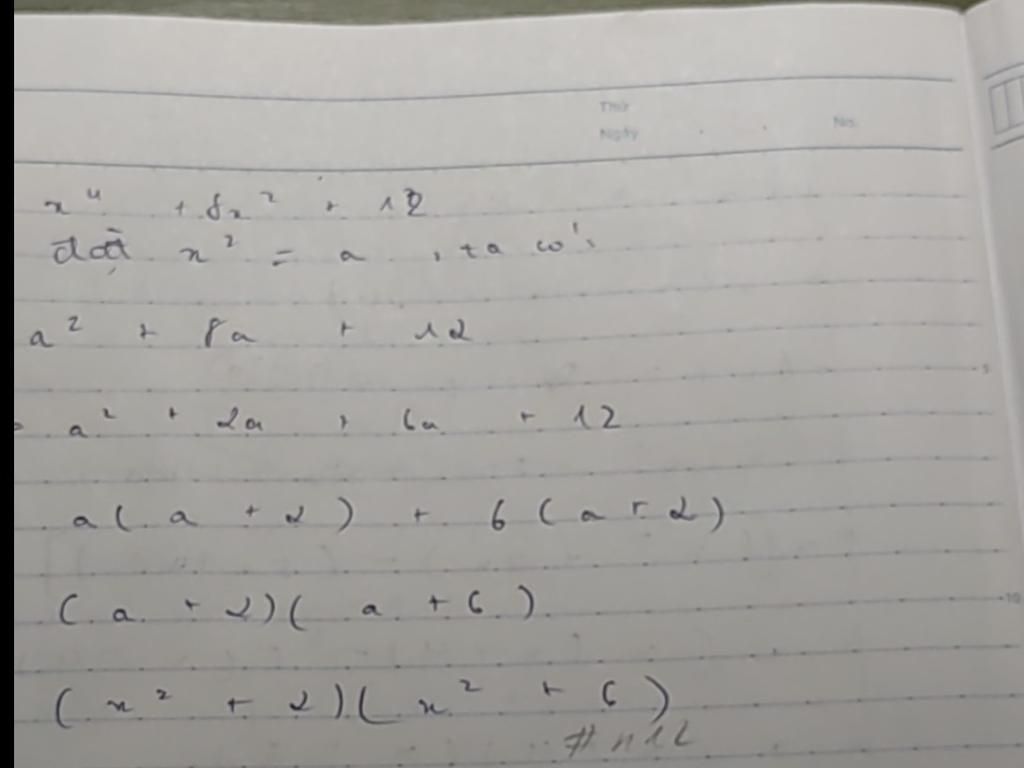 Thứ
Ngày . . No.
x⁴ + 8x² + 12
đặt x² = a , ta có:
a² + 8a + 12
5
a² + 2a + 6a + 12
a( a + 2 ) + 6 ( a + 2 )
( a + 2)( a + 6 )
10
( x² + 2)( x² + 6 )